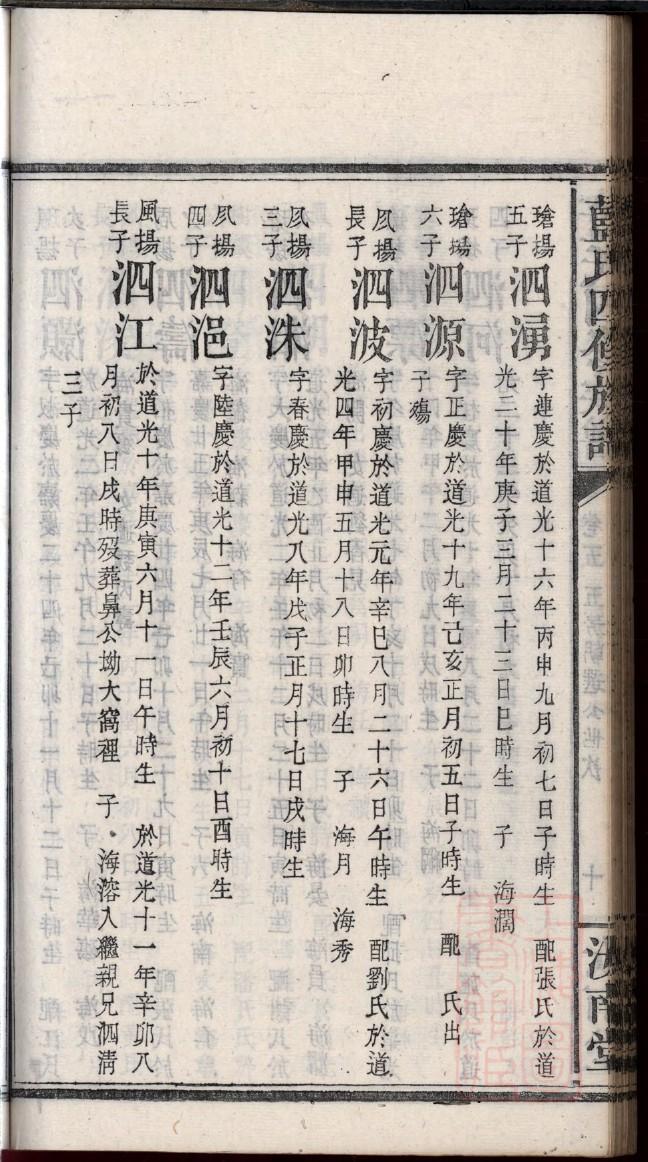 藍氏四修族譜
卷五
十
汝南堂
瑲揚五子 泗湧 字連慶於道光十六年丙申九月初七日子時生 配張氏於道
光二十年庚子三月二十三日巳時生 子 海潤
瑲揚六子 泗源 字正慶於道光十九年己亥正月初五日子時生 配 氏出
子殤
風揚長子 泗波 字初慶於道光元年辛巳八月二十六日午時生 配劉氏於道
光四年甲申五月十八日卯時生 子 海月 海秀
風揚三子 泗洙 字春慶於道光八年戊子正月十七日戌時生
風揚四子 泗浥 字陸慶於道光十二年壬辰六月初十日酉時生
風揚長子 泗江 於道光十年庚寅六月十一日午時生 於道光十一年辛卯八
月初八日戌時歿葬鼻公坳大窩裡 子 海溶入繼親兄泗清
三子